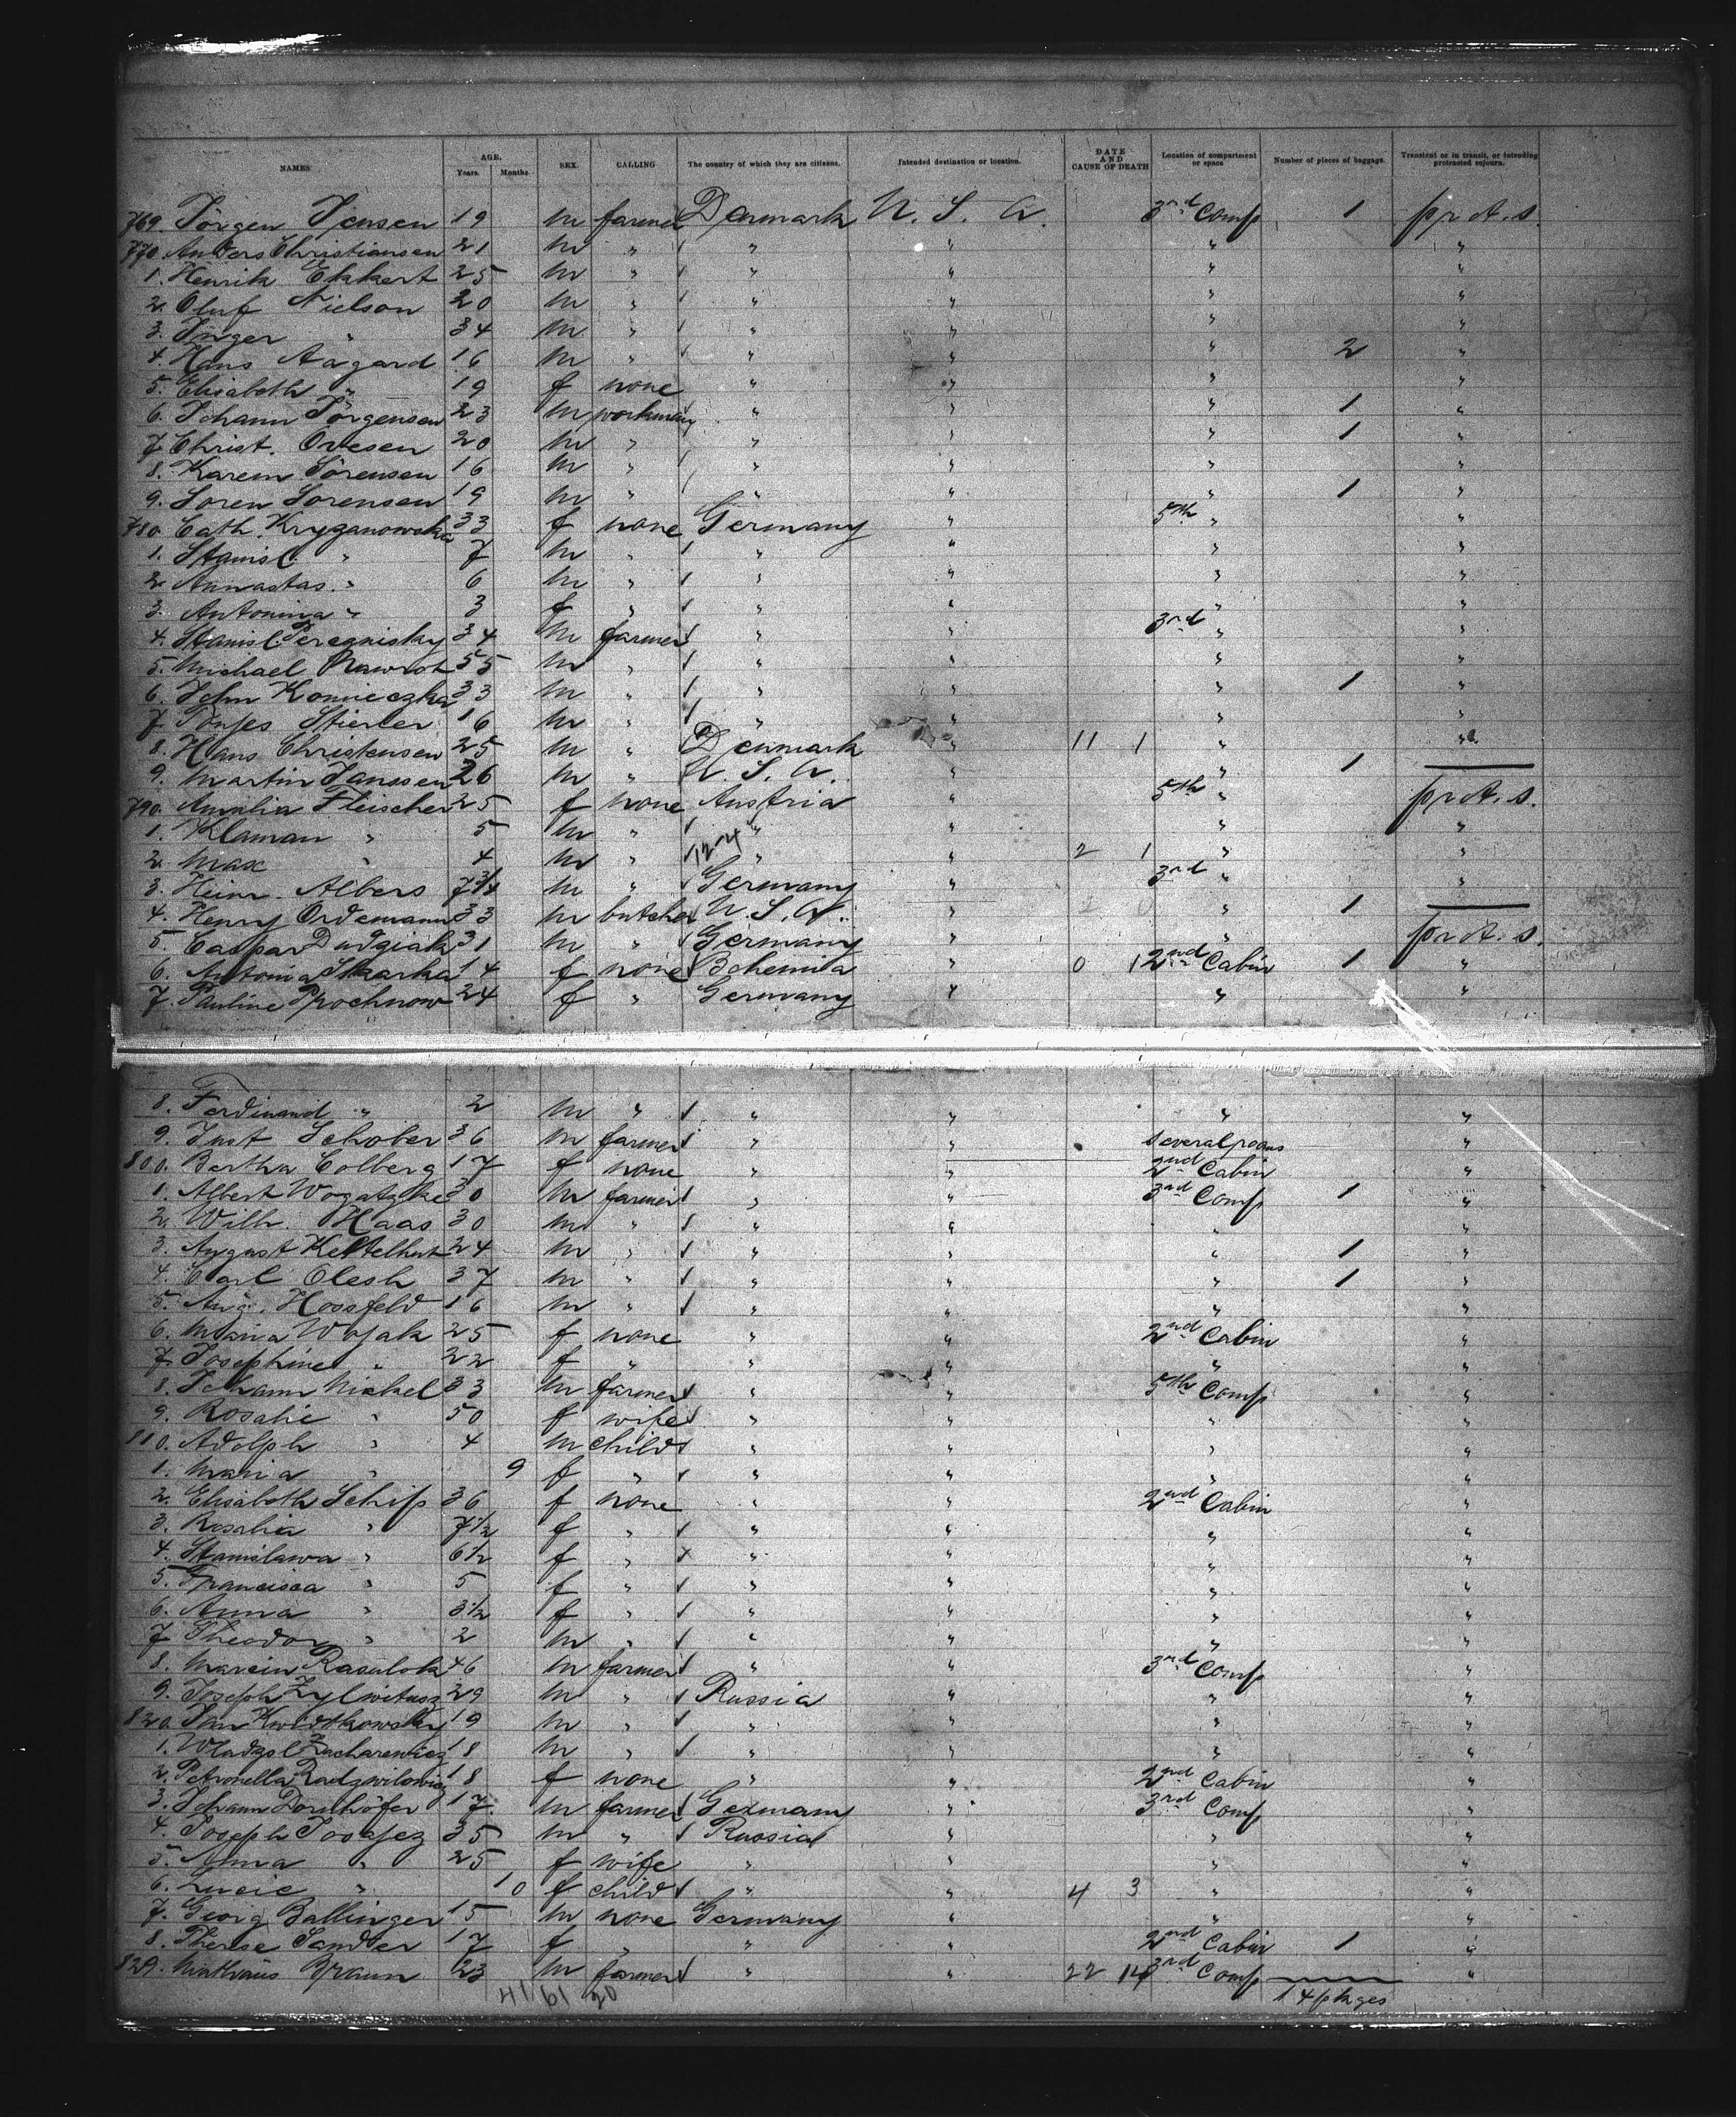 NAMES AGE. Years. Months. SEX. CALLING The country of which they are citizens. Intended destination or location. DATE AND CAUSE OF DEATH Location of compartment or space Number of pieces of baggage. Transient or in transit, or intending protracted sojourn.
769. Jörgen Jensen 19 m farmer Denmark U. S. A. 3rd Comp 1 pr A. s.
770. Anders Christiansen 21 m " " " " "
1. Henrik Ekkert 25 m " " " " "
2. Oluf Nielson 20 m " " " " "
3. Inger " 34 m " " " " "
4. Hans Aagard 16 m " " " " 2 "
5. Elisabeth " 19 f none " " " "
6. Johann Jörgensen 23 m workman " " " 1 "
7. Christ. Ovesen 20 m " " " " 1 "
8. Karem Sörensen 16 m " " " " "
9. Soren Sorensen 19 m " " " " 1 "
780. Cath. Kryzanowska 33 f none Germany " 5th " "
1. Stanisl. " 7 m " " " " "
2. Annastas. " 6 m " " " " "
3. Antonina " 3 f " " " " "
4. Stanisl. 34 m farmer " " 3rd " "
5. Michael Nawrot 55 m " " " " "
6. John Konieczka 33 m " " " " 1 "
7. Stierler 16 m " " " " "
8. Hans Christensen 25 m " Denmark " 11 1 " "
9. Martin Janssen 26 m " U. S. A. " " 1 —
790. Amalia Fleischer 25 f none Austria " 5th " pr A. s.
1. Klaman " 5 m " " " " "
2. Max " 4 m " " " 2 1 " "
3. Heinr. Albers 7 3/4 m " Germany " 3rd " "
4. Henry Ordemann 33 m butcher U. S. A. " " 1 —
5. Caspar Dudziak 31 m " Germany " " pr A. s.
6. Antonia Skarka 14 f none Bohemia " 0 1 2nd Cabin 1 "
7. Pauline Prochnow 24 f " Germany " " "
8. Ferdinand " 2 m " " " " "
9. Just Schober 36 m farmer " " several rooms "
800. Bertha Colberg 17 f none " " 2nd Cabin "
1. Albert Wogatzke 30 m farmer " " 3rd Comp 1 "
2. Wilh. Haas 30 m " " " " "
3. August Kettelhut 24 m " " " " 1 "
4. Carl Olesh 37 m " " " " 1 "
5. Aug. Hossfeld 16 m " " " " "
6. Maria Wojak 25 f none " " 2nd Cabin "
7. Josephine " 22 f " " " " "
8. Johann Nickel 33 m farmer " " 5th Comp "
9. Rosalie " 50 f wife " " " "
810. Adolph " 4 m child " " " "
1. Maria " 9 f " " " " "
2. Elisabeth Schip 36 f none " " 2nd Cabin "
3. Rosalia " 7 1/2 f " " " " "
4. Stanislawa " 6 1/2 f " " " " "
5. Francisca " 5 f " " " " "
6. Anna " 3 1/2 f " " " " "
7. Theodor " 2 m " " " " "
8. Marcin 46 m farmer " " 3rd Comp "
9. Joseph 29 m " Russia " " "
820. Jan Kwiatkowsky 19 m " " " " "
1. Wladysl. Zacharewicz 18 m " " " " "
2. Petronella Radzwilowicz 18 f none " " 2nd Cabin "
3. Johann Dornhöfer 17 m farmer Germany " 3rd Comp "
4. Joseph 35 m " Russia " " "
5. Anna " 25 f wife " " " "
6. Lucie " 10 f child " " 4 3 " "
7. Georg Ballinger 15 m none Germany " " "
8. Therese Sander 17 f " " " 2nd Cabin 1 "
829. Mathäus Braun 23 m farmer " " 22 14 3rd Comp "
41 61 20 14 pkges